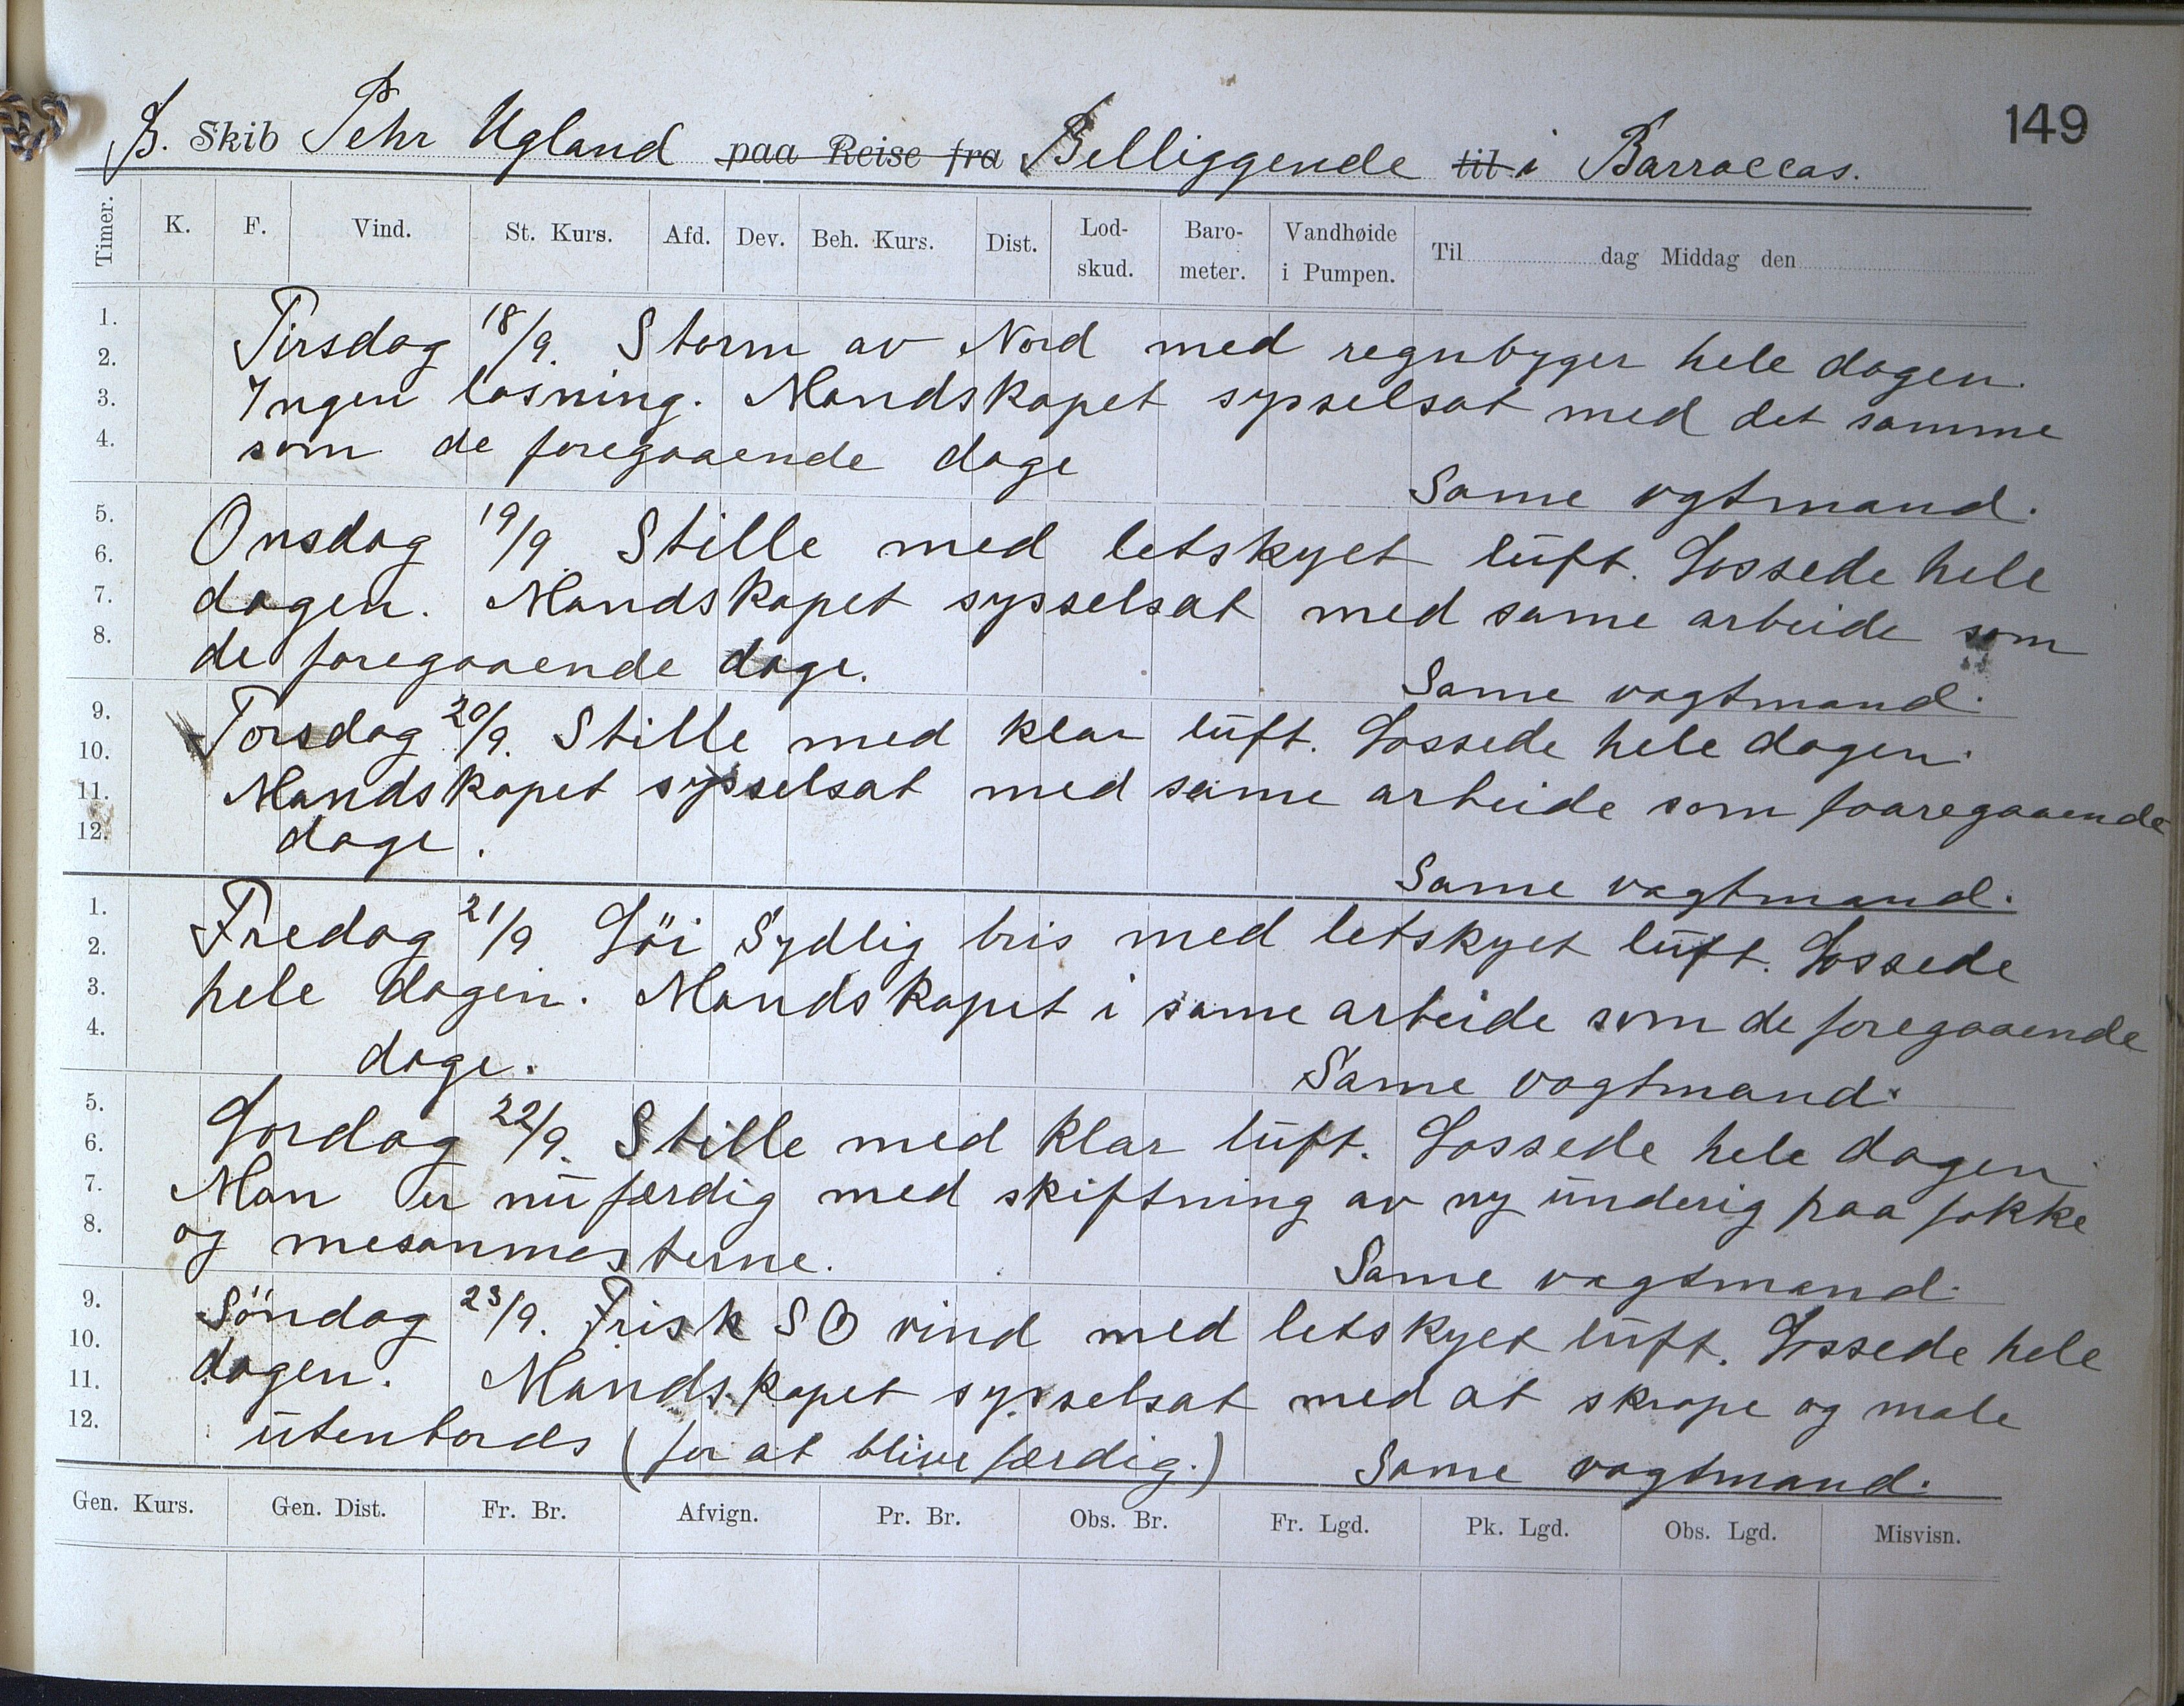 149
B. Skib Pehr Ugland paa Reise fra Belliggende til i Barraccas.
Timer. K. F. Vind. St. Kurs. Afd. Dev. Beh. Kurs. Dist. Lod-skud. Baro-meter. Vandhøide i Pumpen. Til dag Middag den
1. 2. 3. 4. 5. 6. 7. 8. 9. 10. 11. 12.
Tirsdag 18/9. Storm av Nord med regnbyger hele dagen.
Ingen losning. Mandskapet sysselsat med det samme
som de foregaaende dage
Same vgtmand.
Onsdag 19/9 Stille med letskyet luft. Lossede hele
dagen. Mandskapet sysselsat med same arbeide som
de foregaaende dage.
Same vagtmand.
Torsdag 20/9. Stille med klar luft. Lossede hele dagen.
Mandskapet sysselsat med same arbeide som foaregaaende
dage.
Same vagtmand.
1. 2. 3. 4. 5. 6. 7. 8. 9. 10. 11. 12.
Fredag 21/9 Löi Sydlig bris med letskyet luft. Lossede
hele dagen. Mandskapet i same arbeide som de foregaaende
dage.
Same vagtmand.
Lordag 22/9. Stille med klar luft. Lossede hele dagen
Man er nu færdig med skiftning av ny underig paa fokke
og mesanmasterne.
Same vagtmand.
Söndag 23/9. Frisk SO vind med letskyet luft. Lossede hele
dagen. Mandskapet sysselsat med at skrape og male
utenbords (for at blive færdig.)
Same vagtmand.
Gen. Kurs. Gen. Dist. Fr. Br. Afvign. Pr. Br. Obs. Br. Fr. Lgd. Pk. Lgd. Obs. Lgd. Misvisn.